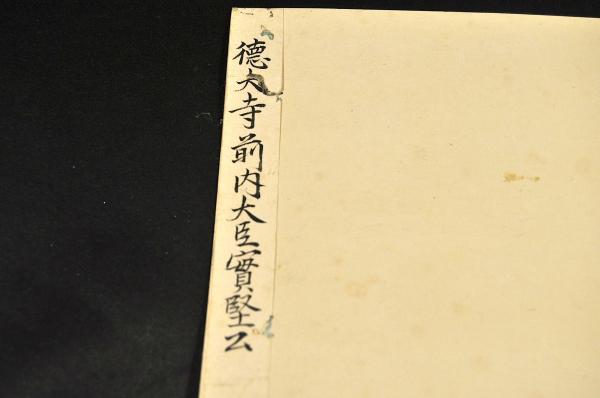 德大寺前内大臣實堅公